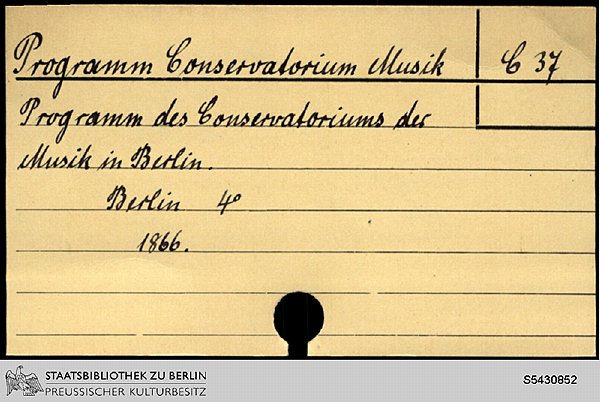 Programm Conservatorium Musik C 37
Programm des Conservatoriums der
Musik in Berlin.
Berlin 4°
1866.
STAATSBIBLIOTHEK ZU BERLIN
PREUSSISCHER KULTURBESITZ
S5430852